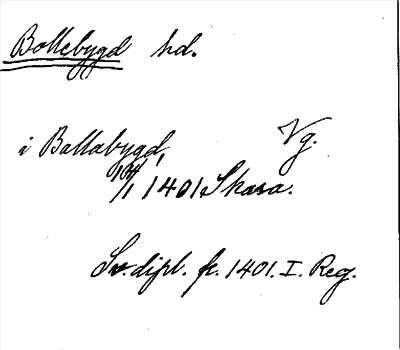 Bollebygd hd.
i Ballabygd, Vg.
10/1 1401 Skara.
Sv. dipl. fr. 1401. I. Reg.